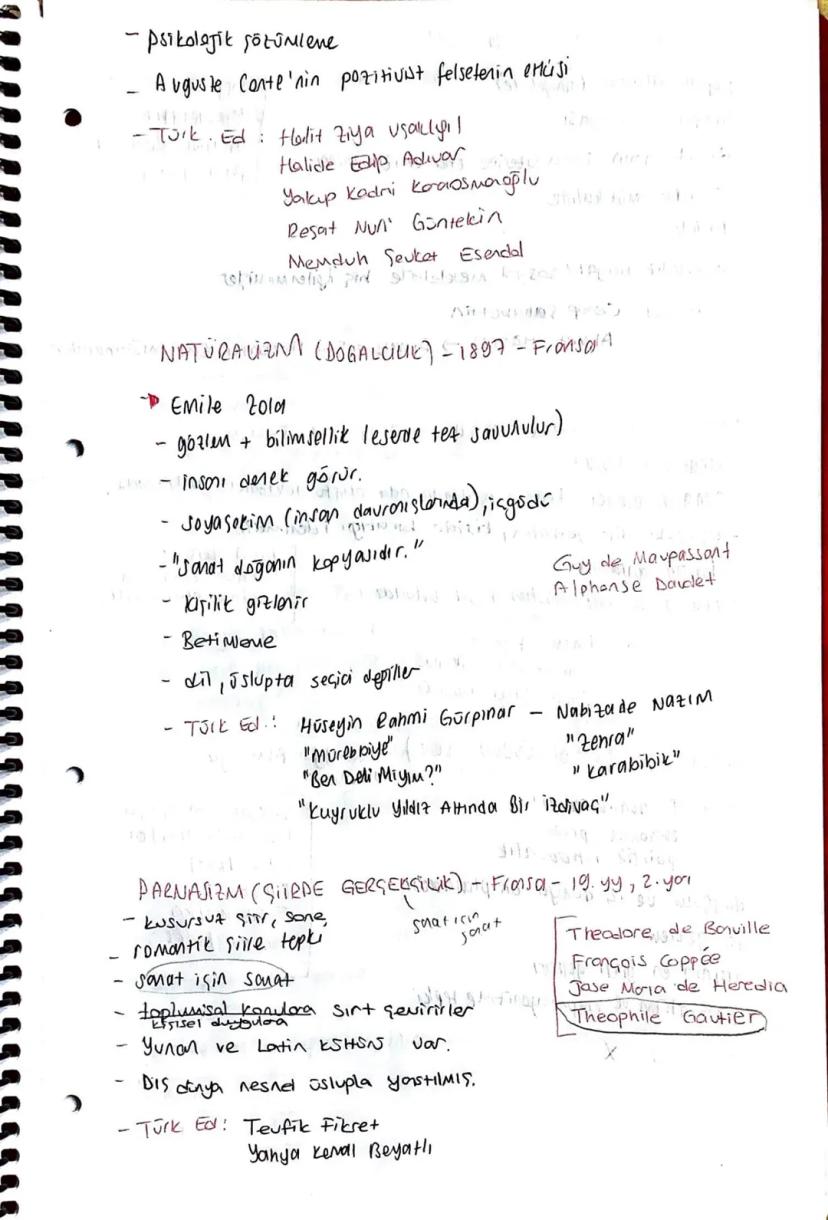 - psikolojik çözümleme
- Auguste Conte'nin pozitivist felsefenin etkisi
- Türk. Ed : Halit Ziya Uşaklıgil
Halide Edip Adıvar
Yakup Kadri Karaosmanoğlu
Reşat Nuri Güntekin
Memduh Şevket Esendal
NATÜRALİZM (DOĞALCILIK) - 1897 - Fransa
Emile Zola
- gözlem + bilimsellik (eserde tez savunulur)
- insanı denek görür.
- soyaçekim (insan davranışlarında), içgüdü
- "Sanat doğanın kopyasıdır."
Guy de Maupassant
Alphonse Daudet
- kişilik gizlenir
- Betimleme
- dil, üslupta seçici değiller
- Türk Ed.: Hüseyin Rahmi Gürpınar - Nabizade Nazım
"Mürebbiye" "Zehra"
"Ben Deli Miyim?" "Karabibik"
"Kuyruklu Yıldız Altında Bir İzdivaç"
PARNASİZM (ŞİİRDE GERÇEKÇİLİK) - Fransa - 19. yy, 2. yarı
sanat için
sanat
- kusursuz şiir, sone,
- romantik şiire tepki
- sanat için sanat
- toplumsal konulara sırt çevirirler
kişisel duygulara
- Yunan ve Latin var.
- Dış dünya nesnel üslupla yansıtılmış.
- Türk Ed: Tevfik Fikret
Yahya Kemal Beyatlı
Theodore de Banville
François Coppée
Jose Maria de Heredia
Theophile Gautier
x